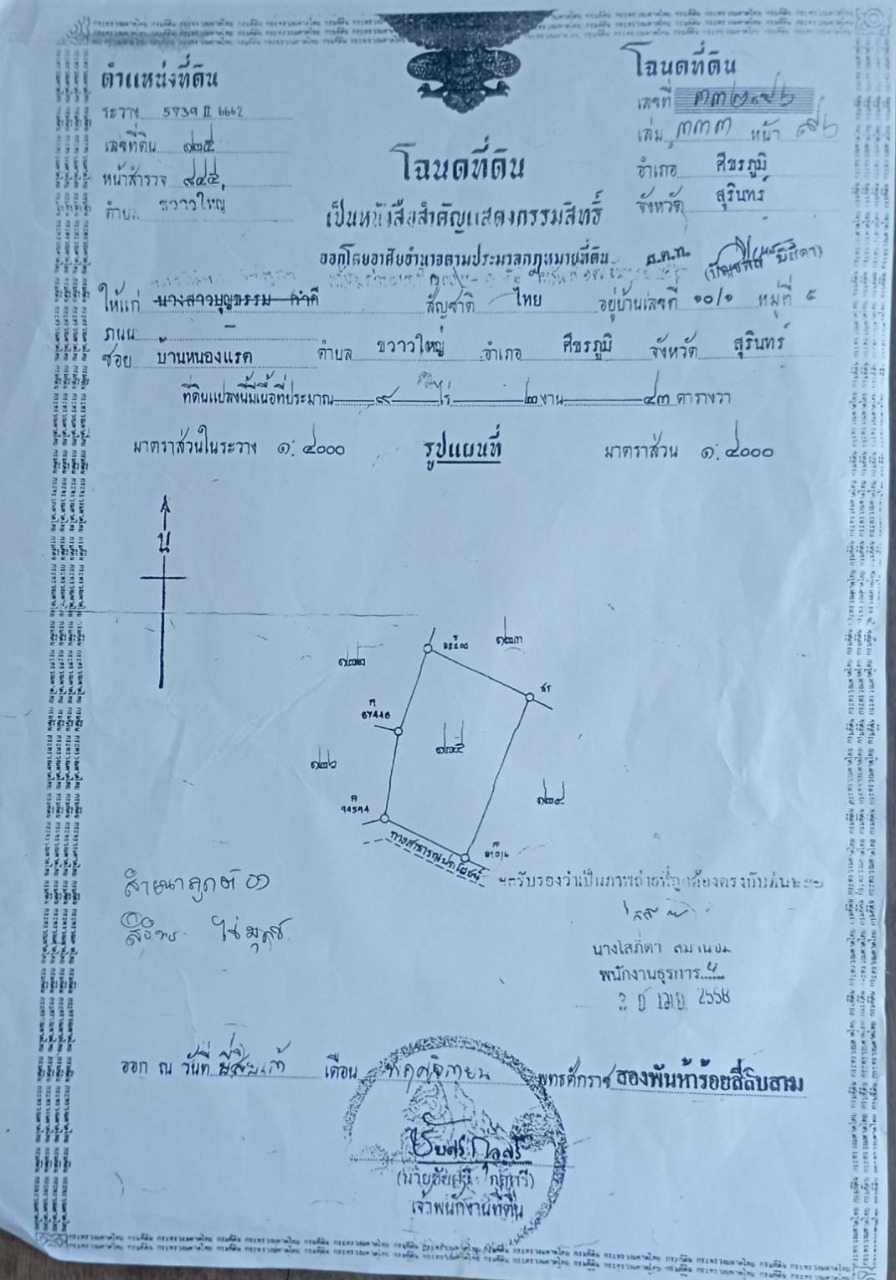 ตำแหน่งที่ดิน
ระวาง 5739 II 6662
เลขที่ดิน ๑๒๕
หน้าสำรวจ ๘๔๔
ตำบล ขวาวใหญ่
โฉนดที่ดิน
เลขที่ ๓๓๒๙๖
เล่ม ๓๓๓ หน้า ๙๖
อำเภอ ศีขรภูมิ
จังหวัด สุรินทร์
โฉนดที่ดิน
เป็นหนังสือสำคัญแสดงกรรมสิทธิ์
ออกโดยอาศัยอำนาจตามประมวลกฎหมายที่ดิน
ให้แก่ นางสาวบุญธรรม คำดี สัญชาติ ไทย อยู่บ้านเลขที่ ๑๐/๑ หมู่ที่ ๕
ถนน
ซอย บ้านหนองแรต ตำบล ขวาวใหญ่ อำเภอ ศีขรภูมิ จังหวัด สุรินทร์
ที่ดินแปลงนี้มีเนื้อที่ประมาณ ๙ ไร่ ๒ งาน ๔๓ ตารางวา
มาตราส่วนในระวาง ๑:๔๐๐๐ รูปแผนที่ มาตราส่วน ๑:๔๐๐๐
น
๑๒๓
๑๒๒
สร
๑๒๕
๑๒๖
๑๒๔
ทางสาธารณประโยชน์
รับรองว่าเป็นภาพถ่ายที่ถูกต้องตรงกับต้นฉบับ
สำเนาถูกต้อง
นางโสภิตา
พนักงานธุรการ
เมย 2558
ออก ณ วันที่ ยี่สิบเก้า เดือน พฤศจิกายน พุทธศักราช สองพันห้าร้อยสี่สิบสาม
เจ้าพนักงานที่ดิน